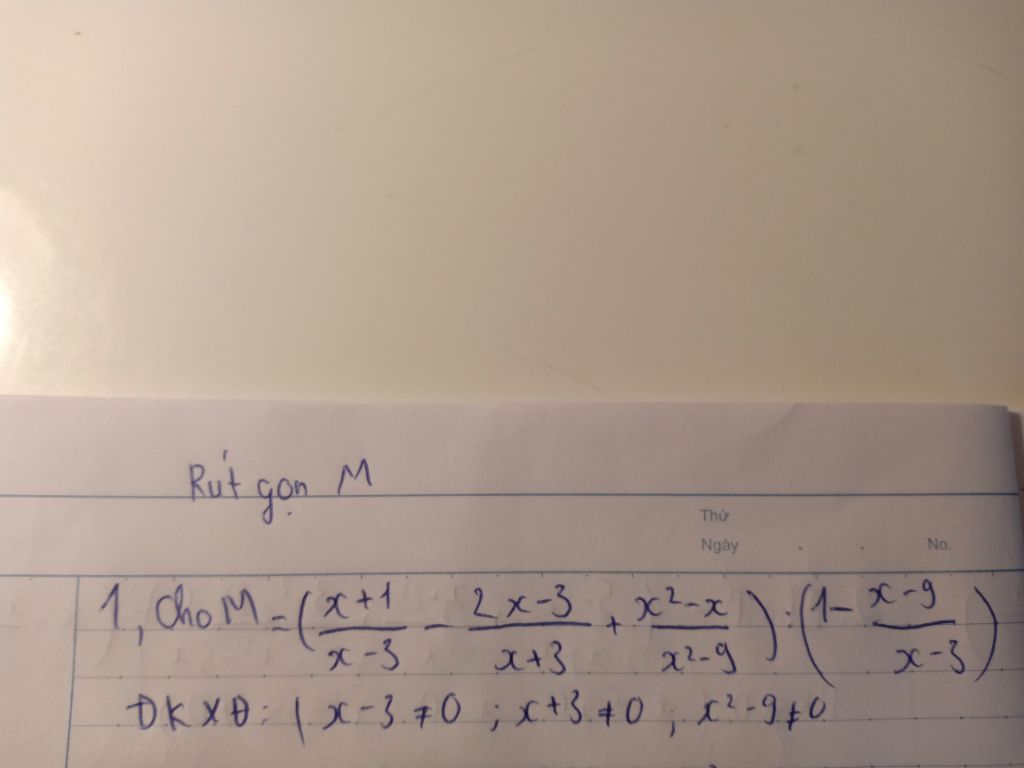 Rút gọn M
Thứ
Ngày . . No.
1, Cho M = (x+1/x-3 - 2x-3/x+3 + x²-x/x²-9) : (1 - x-9/x-3)
ĐKXĐ: | x-3≠0 ; x+3≠0 ; x²-9≠0